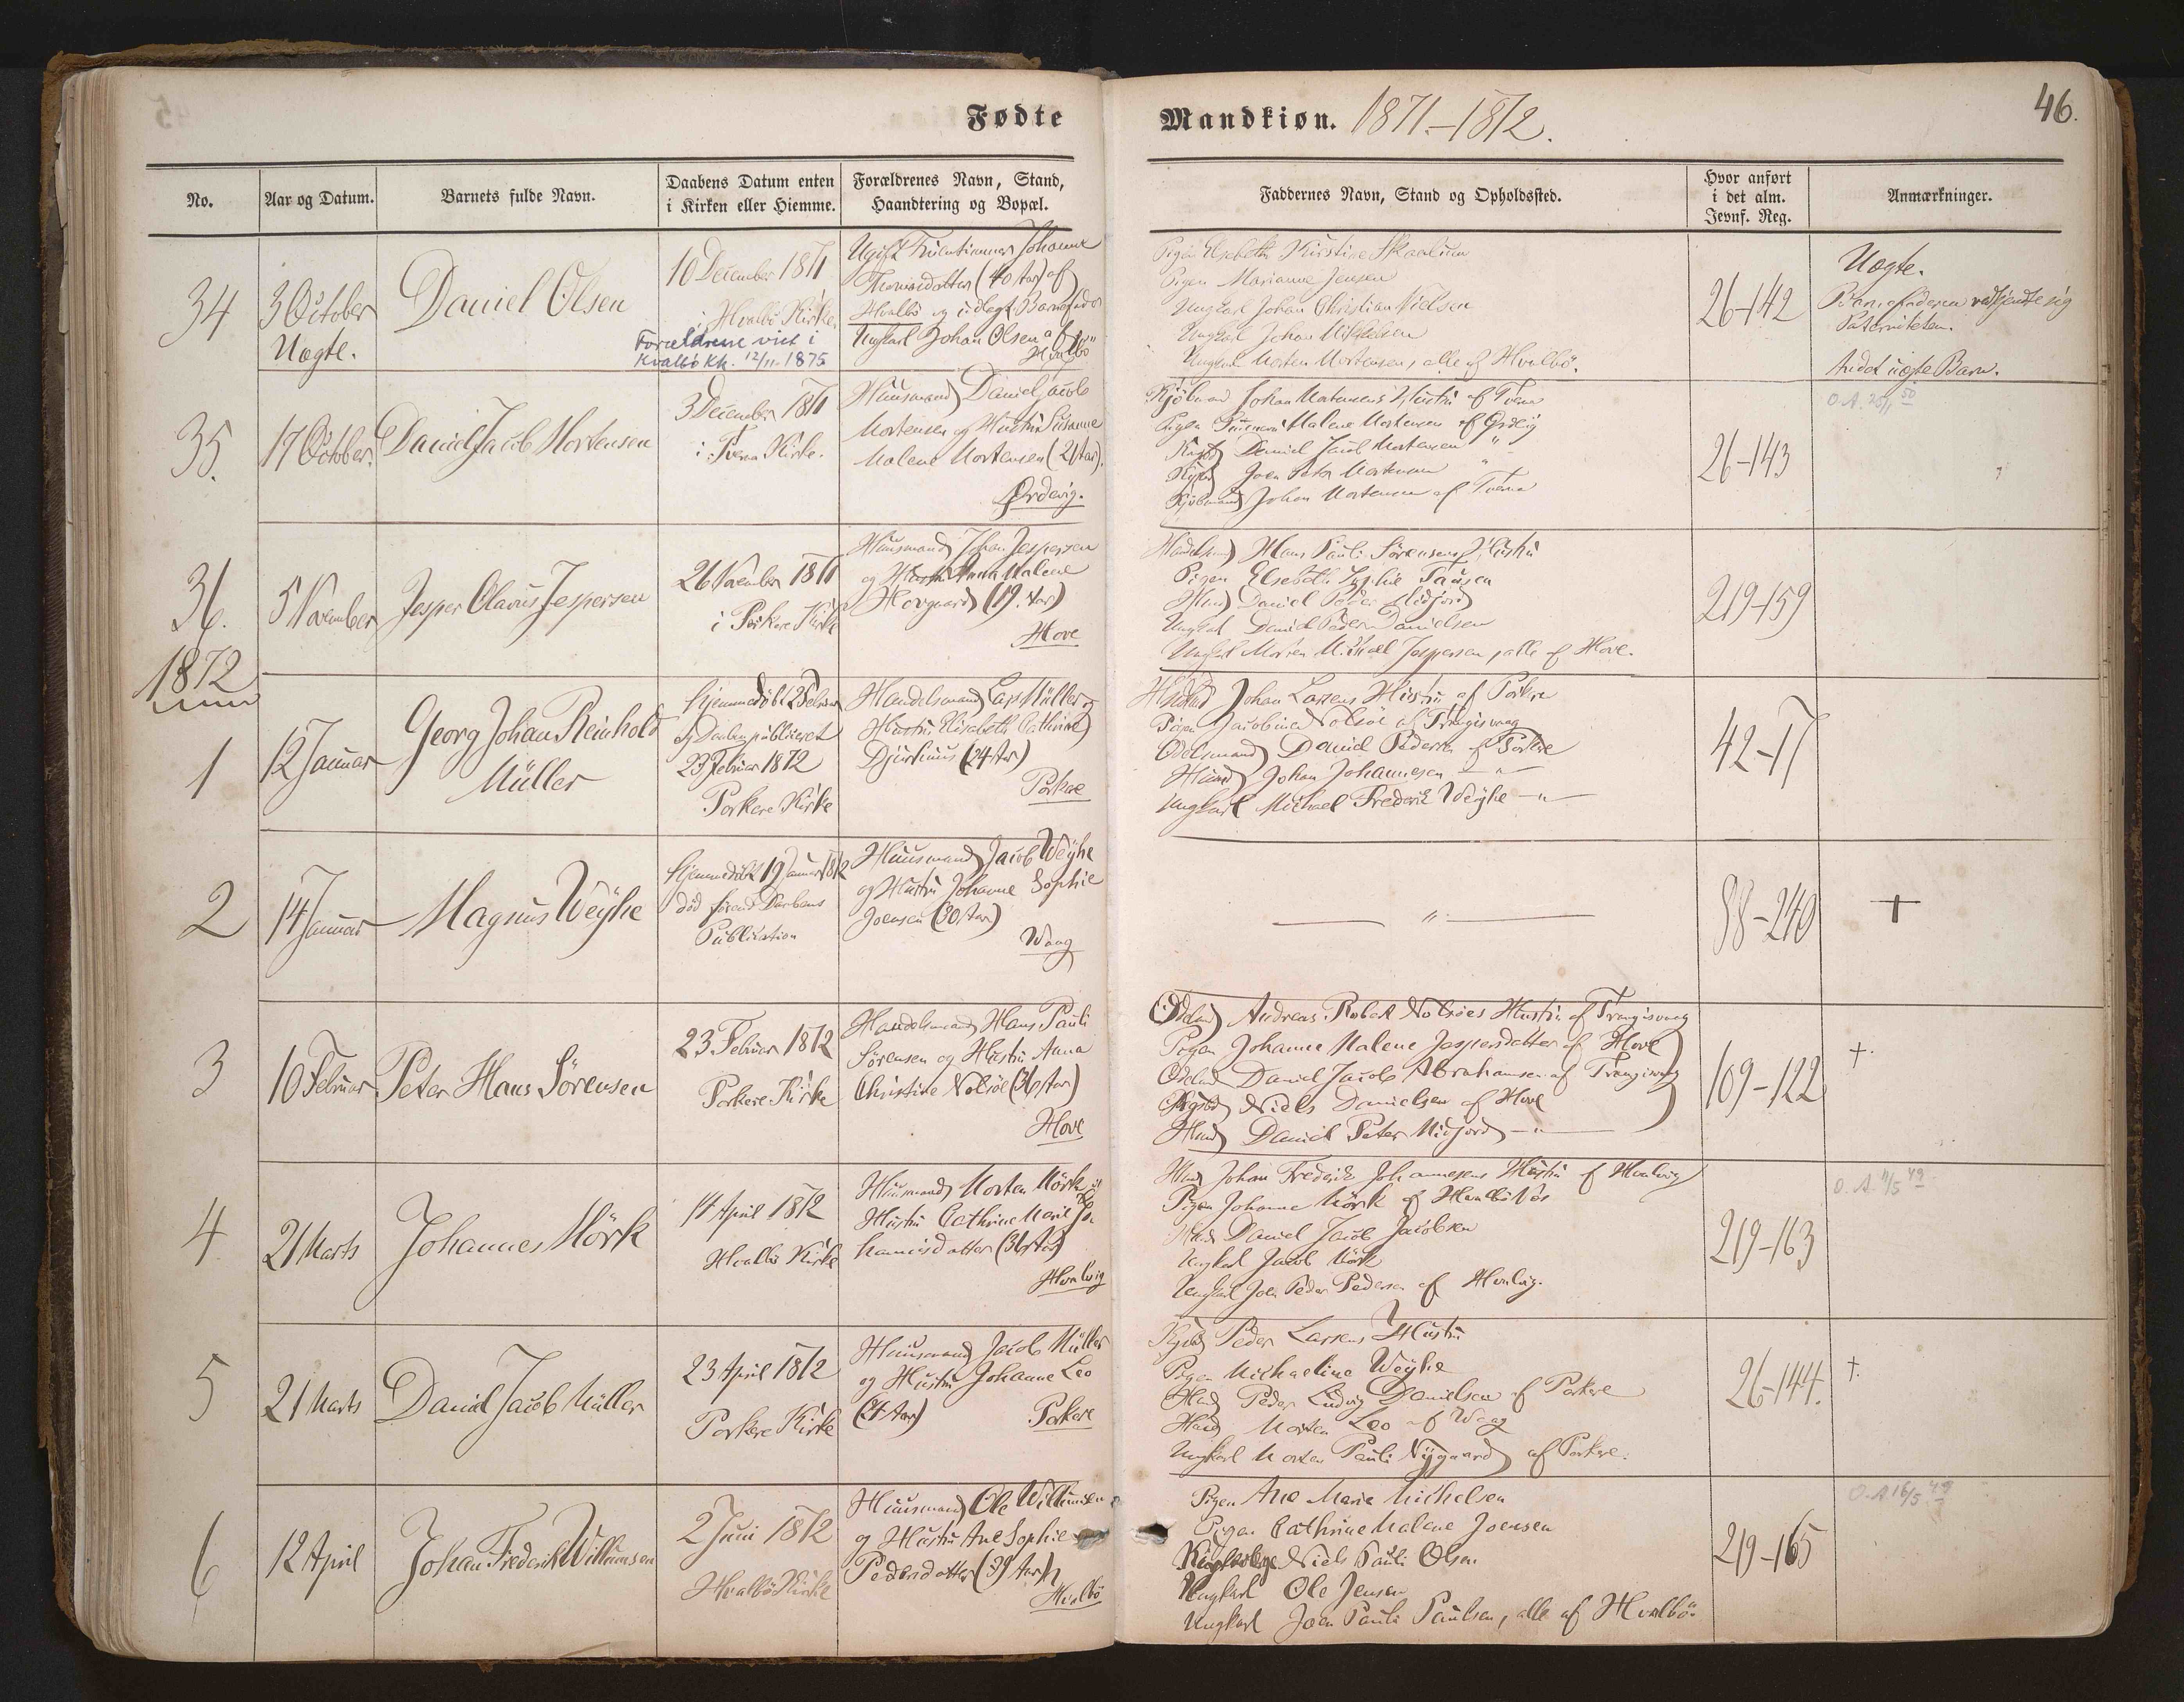 Fødte
Mandkiøn. 1871-1872.
46.
No.
Aar og Datum.
Barnets fulde Navn.
Daabens Datum enten
i Kirken eller Hiemme.
Forældrenes Navn, Stand,
Haandtering og Bopæl.
Faddernes Navn, Stand og Opholdssted.
Hvor anført
i det alm.
Jevnf. Reg.
Anmærkninger.
34
3 October
Uægte.
Daniel Olsen
10 December 1871
i Hvalbö Kirke.
Forældrene viet i
Kvalbö Kk. 12/11-1875
Ugift Johanne
(40 Aar) af
Hvalbö og udlagt Barnefader
Ungkarl Johan Olsen af
Hvalbö
Pigen Elsebeth Kirstine
Pigen Marianne Jensen
Ungkarl Johan Christian Nielsen
Ungkarl Johan
Ungkarl Morten Mortensen, alle af Hvalbö.
26-142
Uægte.
Barnefaderen vedkjendte sig
Paterniteten.
Andet uægte Barn.
35.
17 October.
Daniel Jacob Mortensen
3 December 1871
i Tveraa Kirke.
Huusmand Daniel Jacob
Mortensen og Hustru Susanne
Malene Mortensen (21 Aar).
Ördevig.
Kjöbmand Johan Mortensens Hustru af Tveraa
Pigen Malene Mortensen af Ördevig
Daniel Jacob Mortensen "
Joen Peter Mortensen "
Kjöbmand Johan Mortensen af Tveraa
26-143
O.A. 25/1 50
36.
5 November
Jesper Olavus Jespersen
26 November 1871
i Porkere Kirke
Huusmand Johan Jespersen
og Hustru Anna Malene
Hovgaard (19 Aar)
Hove
Handelsmd Hans Pauli Sörensens Hustru
Pigen Elsebeth Sophie Tausen
Daniel Peder Midjord
Ungkarl Daniel Peder Danielsen
Ungkarl Morten Michael Jespersen, alle af Hove.
219-159
1872
1
12 Januar
Georg Johan Reinhold
Müller
Hjemmedöbt 2 Februar
og Daaben publiceret
23 Februar 1872
Porkere Kirke
Handelsmand Lars Müller og
Hustru Elisabeth Cathrine
Djurhuus (24 Aar)
Porkere
Johan Larsens Hustru af Porkere
Pigen Jacobina Nolsöe af Trangisvaag
Odelsmand Daniel Pedersen af Porkere
Johan Johannesen — " —
Ungkarl Michael Frederik Weyhe — " —
42-17
2
14 Januar
Magnus Weyhe
Hjemmedöbt 19 Januar 1872
död förend Daabens
Publication
Huusmand Jacob Weyhe
og Hustru Johanne Sophie
Joensen (30 Aar)
Waag
— " —
98-240
+
3
10 Februar
Peter Hans Sörensen
23 Februar 1872
Porkere Kirke
Handelsmand Hans Pauli
Sörensen og Hustru Anna
Christine Nolsöe (36 Aar)
Hove
Andreas Robert Nolsöes Hustru af Trangisvaag
Pigen Johanne Malene Jespersdatter af Hove
Daniel Jacob Abrahamsen af Trangisvaag
Niels Danielsen af Hove
Daniel Peter Midjord — " —
109-122
+.
4
21 Marts
Johannes Mörk
14 April 1872
Hvalbö Kirke
Huusmand Morten Mörk og
Hustru Cathrine Marie Jo-
hannisdatter (36 Aar)
Hvalvig
Johan Frederik Johannesens Hustru af Hvalvig
Pigen Johanne Mörk af Hvalbö
Daniel Jacob Jacobsen
Ungkarl Jacob Mörk
Ungkarl Joen Peder Pedersen af Hvalvig.
219-163
O.A. 4/5 49
5
21 Marts
Daniel Jacob Müller
23 April 1872
Porkere Kirke
Huusmand Jacob Müller
og Hustru Johanne Leo
(24 Aar)
Porkere
Peder Larsens Hustru
Pigen Michaeline Weyhe
Peder Ludvig Danielsen af Porkere
Morten Leo af Waag
Ungkarl Morten Pauli Nygaard af Porkere.
26-144.
+.
6
12 April
Johan Frederik Willumsen
2 Juni 1872
Hvalbö Kirke
Huusmand Ole Willumsen
og Hustru Ane Sophie
Pedersdatter (39 Aar)
Hvalbö
Pigen Ane Marie Michelsen
Pigen Cathrine Malene Joensen
Niels Pauli Olsen
Ungkarl Ole Jensen
Ungkarl Joen Pauli Paulsen, alle af Hvalbö.
219-165
O.A. 16/5 49